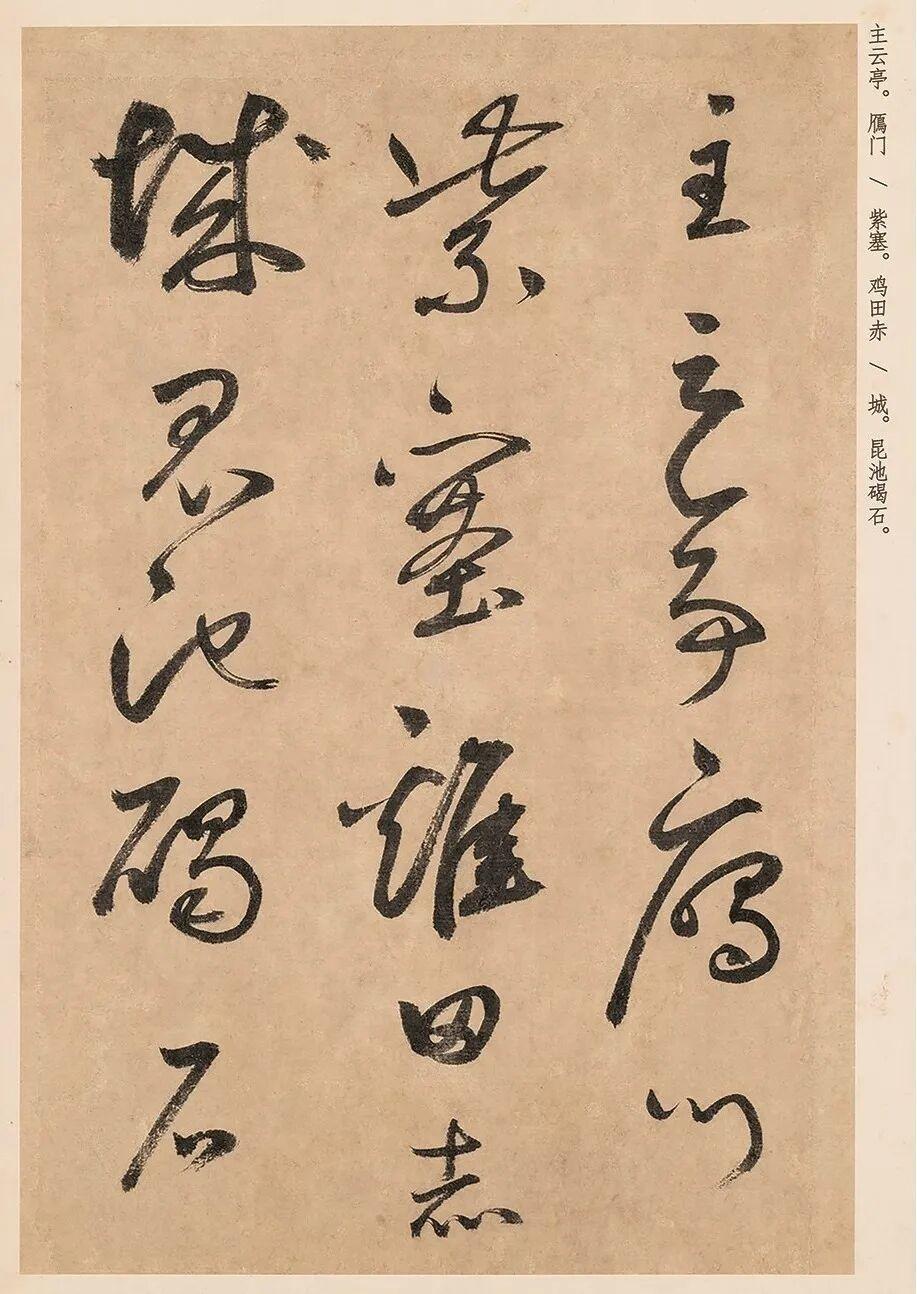 主云亭。鴈门 \ 紫塞。鸡田赤 \ 城。昆池碣石。
主云亭鴈门
紫塞雞田赤
城昆池碣石